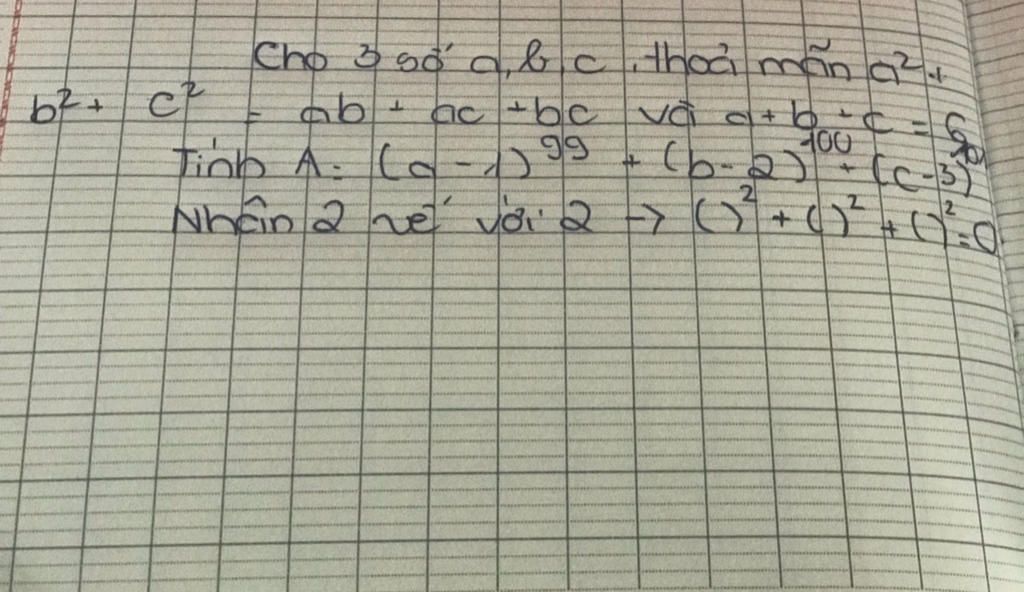 Cho 3 số a, b, c, thoả mãn a² +
b² + c² = ab + ac + bc và a + b + c = 6
Tính A = (a - 1)⁹⁹ + (b - 2)¹⁰⁰ + (c - 3)
Nhân 2 vế với 2 → ()² + ()² + ()² = 0